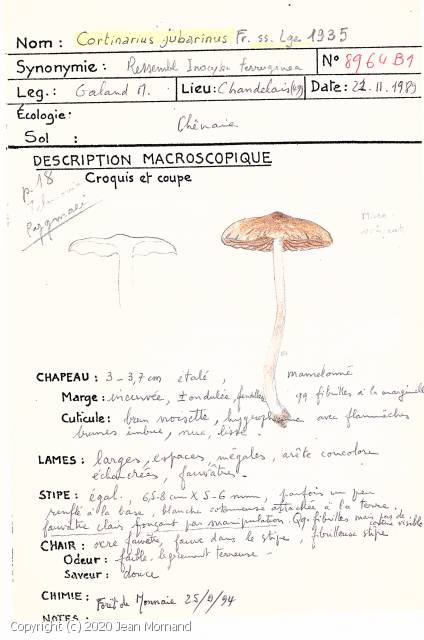 Nom : Cortinarius jubarinus Fr. ss. Lge 1935
Synonymie : Ressemble Inocybe ferruginea
N° 8964B1
Leg. : Galand M.
Lieu: Chandelais (49)
Date: 21.11.1989
Écologie:
Chênaie
Sol :
DESCRIPTION MACROSCOPIQUE
p. 18
Croquis et coupe
Pygmaei
CHAPEAU : 3 - 3,7 cm étalé, mamelonné
Marge : incurvée, ± ondulée, qq fibrilles à la marginelle
Cuticule : brun noisette, hygrophane avec flammèches
brunes imbue, nue, lisse.
LAMES : larges, espacées, inégales, arête concolore
échancrées, fauvâtres.
STIPE : égal, 6,5-8 cm x 5-6 mm, parfois un peu
renflé à la base, blanche cotonneuse attachée à la terre.
fauvâtre clair fonçant par manipulation. Qq. fibrilles mais pas de cortine visible
CHAIR : ocre fauvâtre, fauve dans le stipe, fibrilleuse stipe
Odeur : faible, légèrement terreuse -
Saveur : douce
CHIMIE : Forêt de Monnaie 25/9/94
NOTES :
Copyright (c) 2020 Jean Mornand